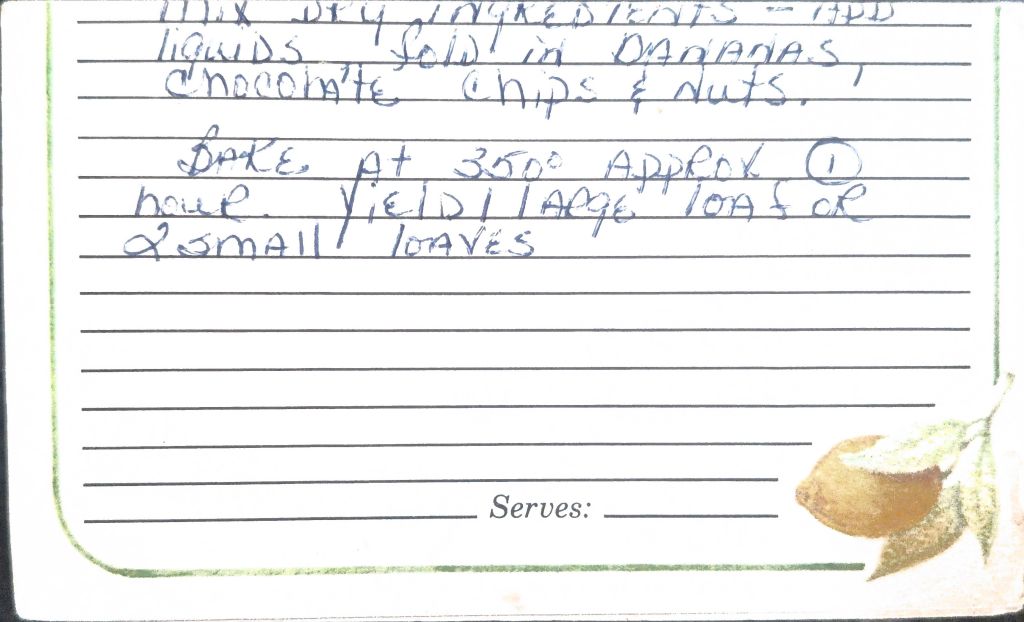 Mix Dry INgREDIENTS - ADD
liquiDS, fold in BANANAS,
Chocolate Chips & Nuts.
BAKE At 350° Approx ①
hour. YiElD 1 lARge loAf oR
2 smAll loAVES
Serves: